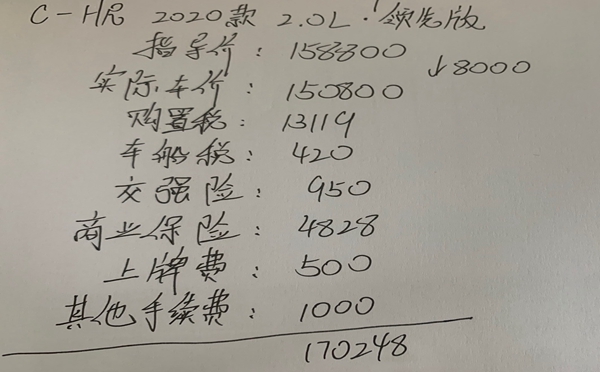 C-HR 2020款 2.0L! 领先版
指导价: 158800
↓8000
实际车价: 150800
购置税: 13119
车船税: 420
交强险: 950
商业保险: 4828
上牌费: 500
其他手续费: 1000
170248